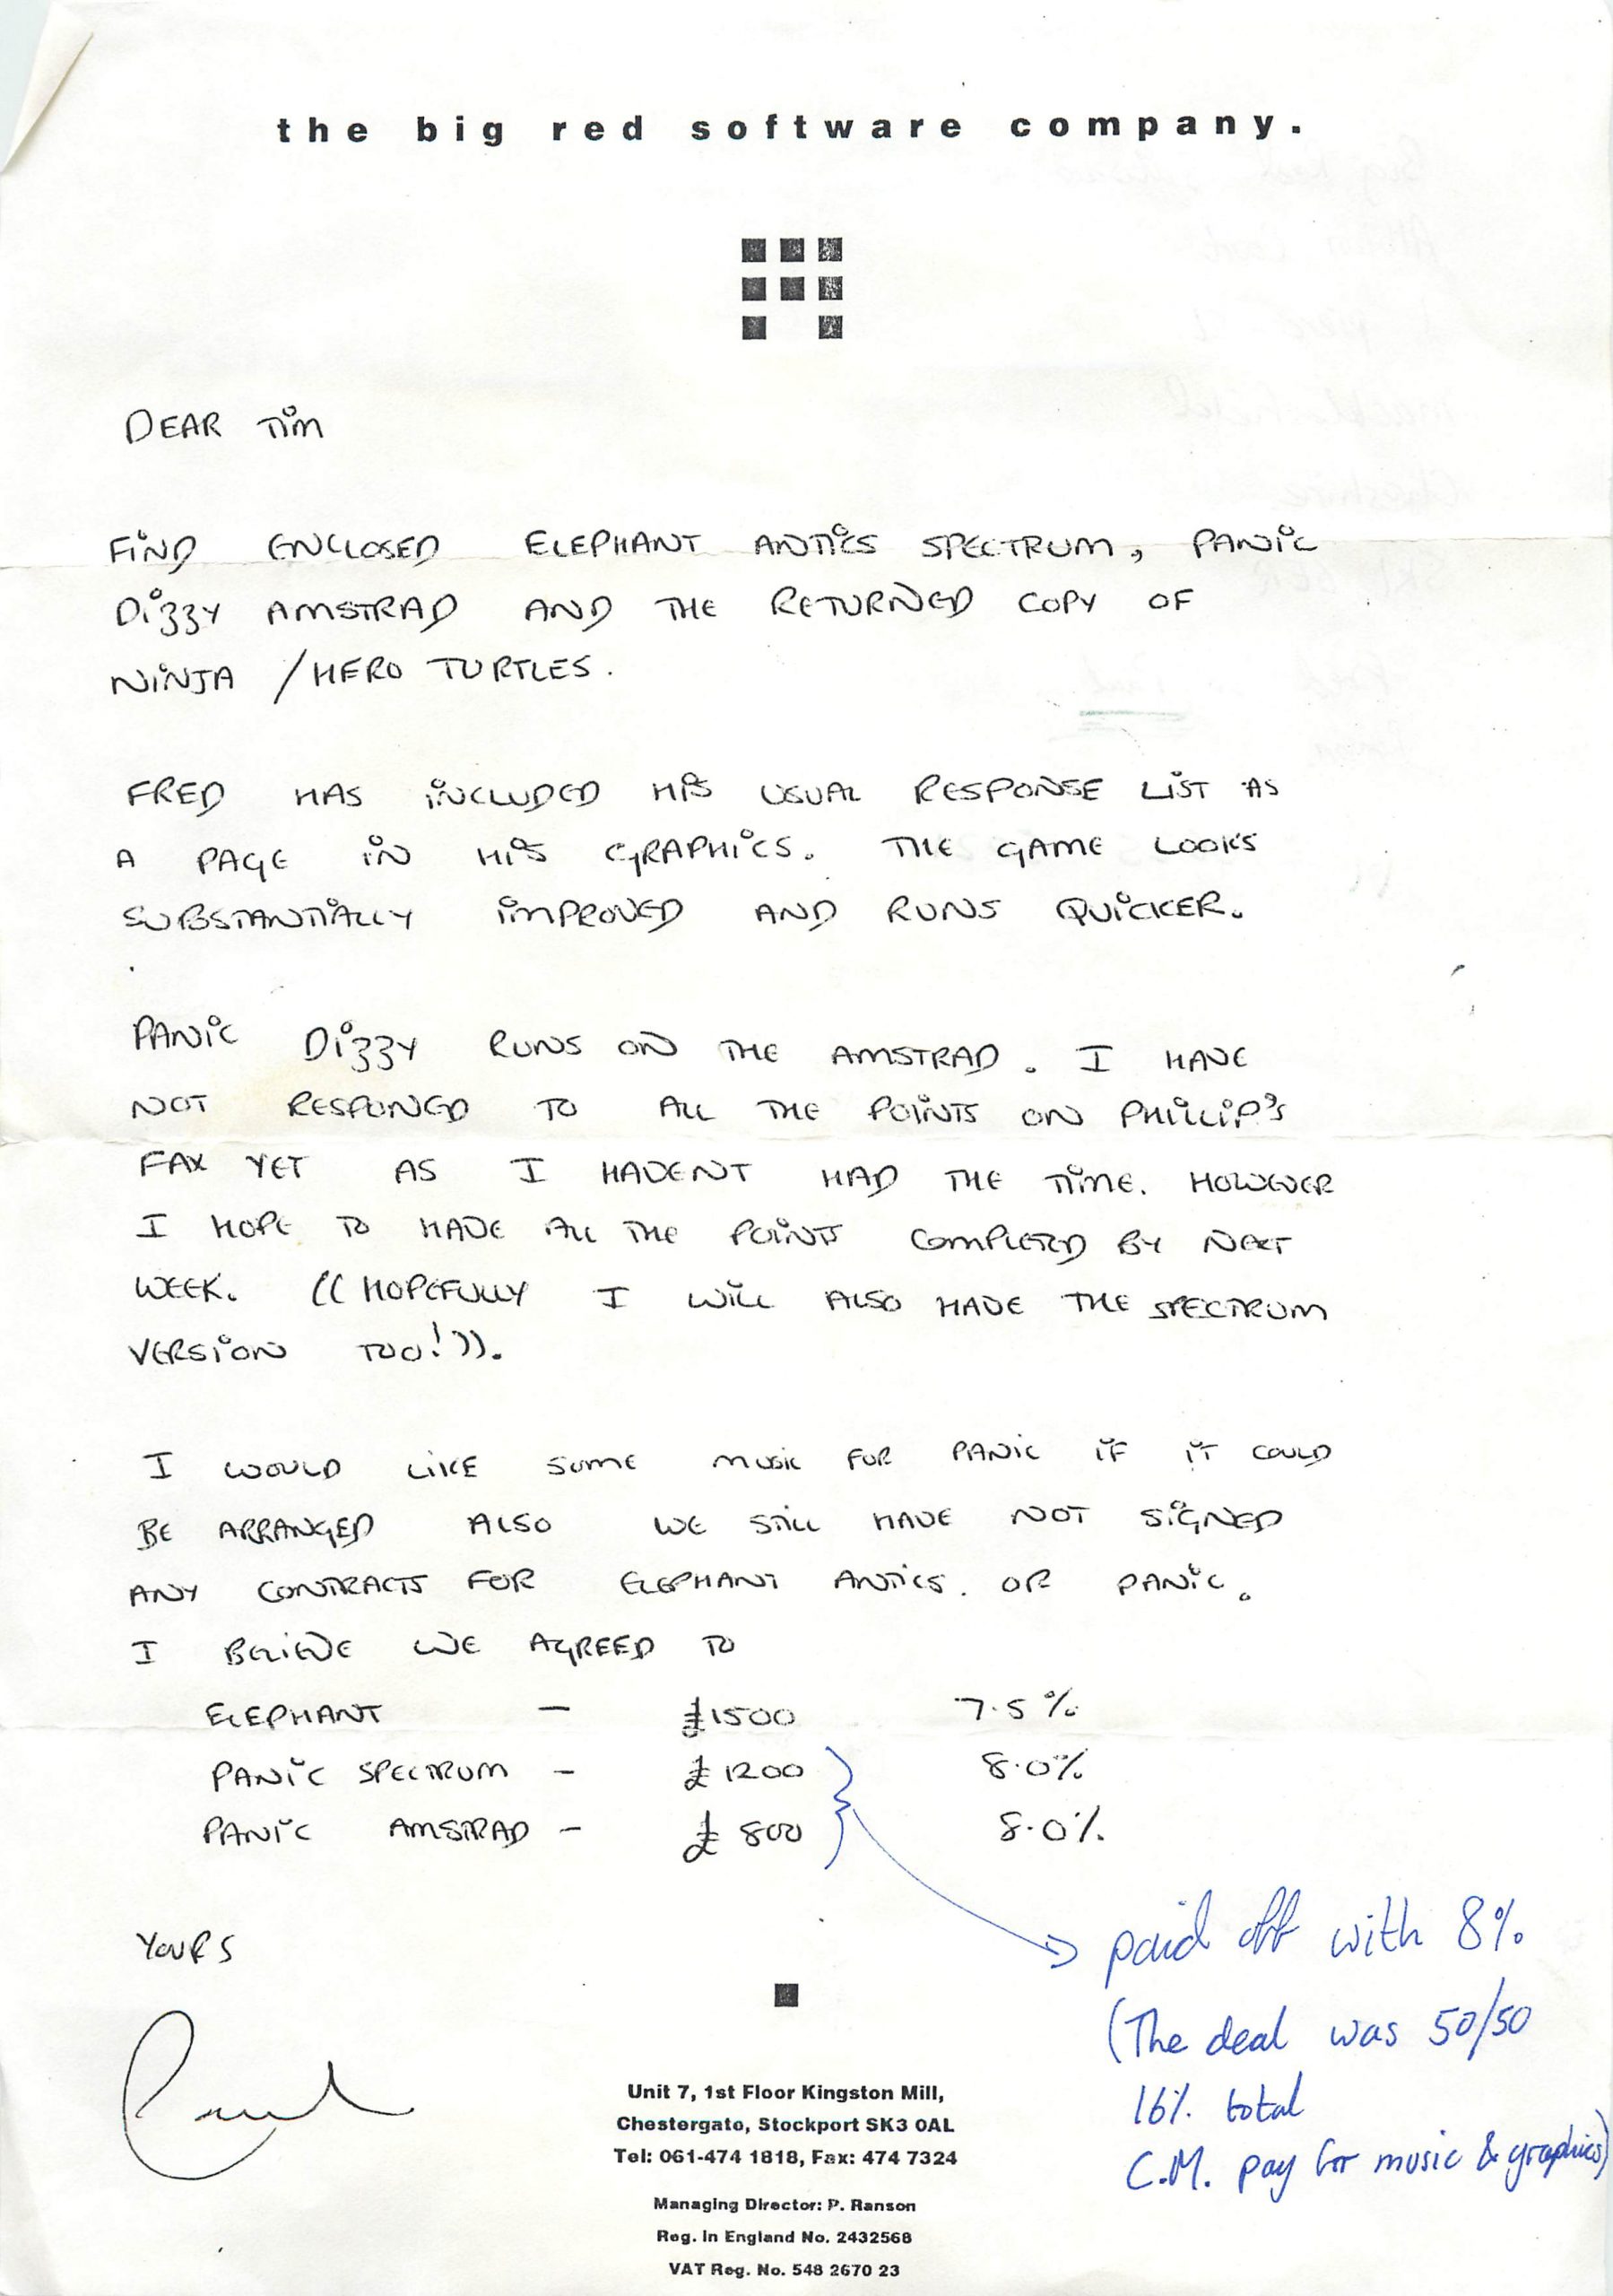 the big red software company.
DEAR TIM
FIND ENCLOSED ELEPHANT ANTICS SPECTRUM, PANIC
DIZZY AMSTRAD AND THE RETURNED COPY OF
NINJA / HERO TURTLES.
FRED HAS INCLUDED HIS USUAL RESPONSE LIST AS
A PAGE IN HIS GRAPHICS. THE GAME LOOKS
SUBSTANTIALLY IMPROVED AND RUNS QUICKER.
PANIC DIZZY RUNS ON THE AMSTRAD. I HAVE
NOT RESPONED TO ALL THE POINTS ON PHILLIP'S
FAX YET AS I HAVENT HAD THE TIME. HOWEVER
I HOPE TO HAVE ALL THE POINTS COMPLETED BY NEXT
WEEK. ((HOPEFULLY I WILL ALSO HAVE THE SPECTRUM
VERSION TOO!)).
I WOULD LIKE SOME MUSIC FOR PANIC IF IT COULD
BE ARRANGED ALSO WE STILL HAVE NOT SIGNED
ANY CONTRACTS FOR ELEPHANT ANTICS. OR PANIC.
I BELIEVE WE AGREED TO
ELEPHANT - £1500 7.5%
PANIC SPECTRUM - £1200 8.0%
PANIC AMSTRAD - £800 8.0%
paid off with 8%
(The deal was 50/50
16% total
C.M. pay for music & graphics)
YOURS
Paul
Unit 7, 1st Floor Kingston Mill,
Chestergate, Stockport SK3 0AL
Tel: 061-474 1818, Fax: 474 7324
Managing Director: P. Ranson
Reg. in England No. 2432568
VAT Reg. No. 548 2670 23